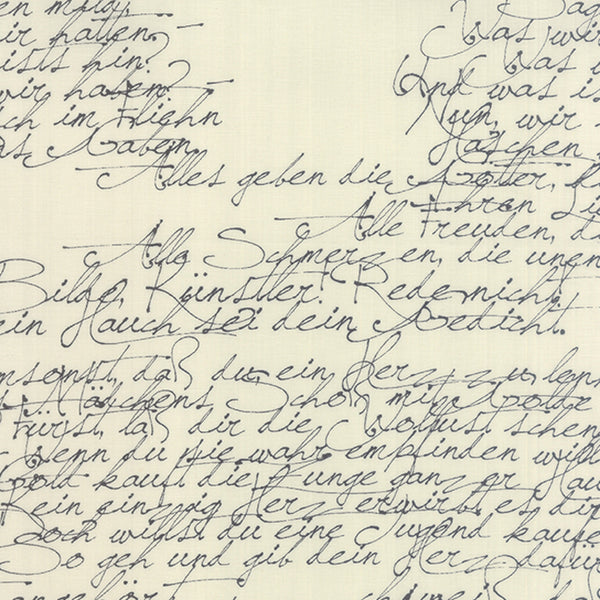 ir hatten –
ists hin?
wir haben? –
ch im Fliehn
as Haben.
Sag
Was wir
Was w
Und was is
Nun, wir
Haschen
Alles geben die Götter,
Ihren Li
Alle Freuden, d
Alle Schmerzen, die unen
Bilde, Künstler! Rede nicht!
ein Hauch sei dein Gedicht.
msonst, daß du, ein Herz zu lenk
Mädchens Schoß mit Golde
Fürst, laß dir die Wollust schen
Wenn du sie wahr empfinden will
Gold kauft die Zunge ganzer Hau
Kein einzig Herz erwirbt es dir
Doch willst du eine Tugend kaufe
So geh und gib dein Herz dafür